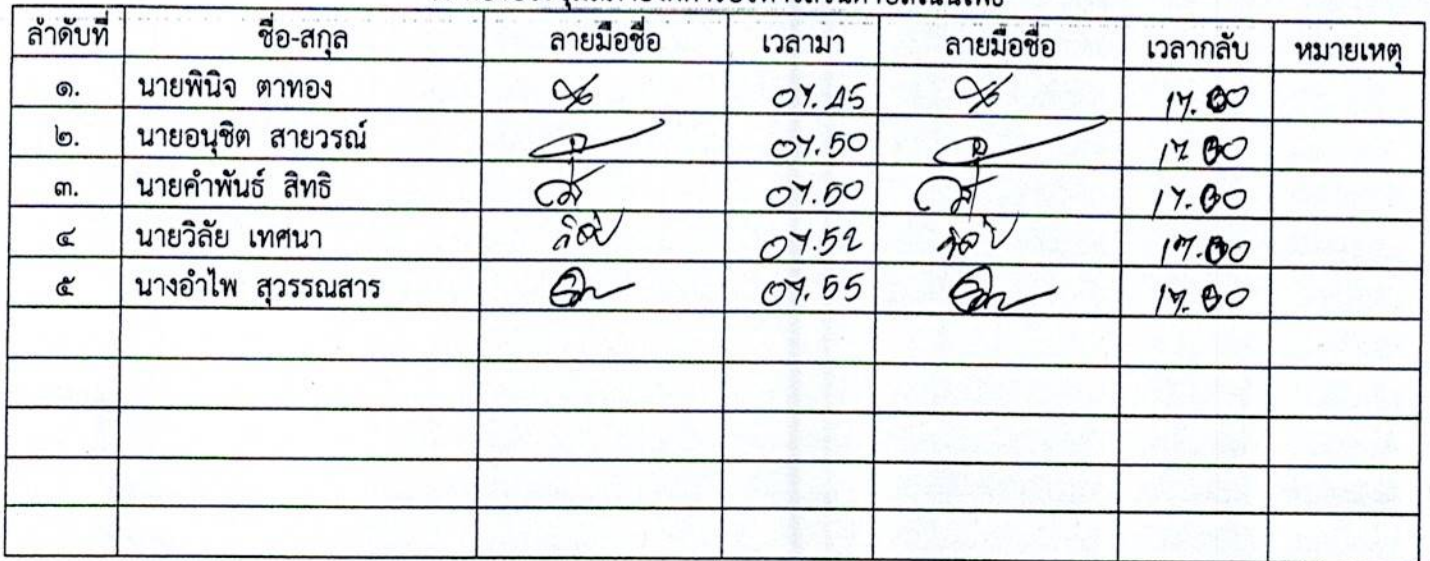 ลำดับที่ ชื่อ-สกุล ลายมือชื่อ เวลามา ลายมือชื่อ เวลากลับ หมายเหตุ
๑. นายพินิจ ตาทอง 07.45 17.00
๒. นายอนุชิต สายวรณ์ 07.50 17.00
๓. นายคำพันธ์ สิทธิ 07.50 17.00
๔ นายวิลัย เทศนา 07.52 17.00
๕ นางอำไพ สุวรรณสาร 07.55 17.00